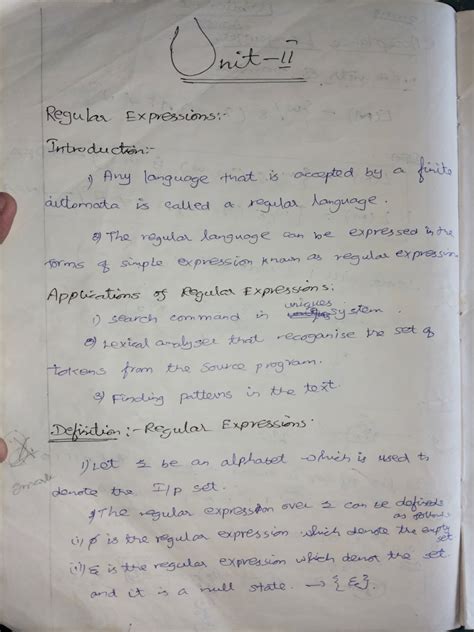 Unit-II
Regular Expressions:-
Introduction:-
1) Any language that is accepted by a finite
automata is called a regular language.
2) The regular language can be expressed in the
forms of simple expression known as regular expression
Applications of Regular Expressions:
uniques
1) search command in system.
2) Lexical analyser that recoganise the set of
tokens from the source program.
3) Finding patterns in the text.
Definition:- Regular Expressions.
1) Let Σ be an alphabet which is used to
denote the I/p set.
The regular expression over Σ can be defined
as follows
(i) φ is the regular expression which denote the empty
set
(ii) ε is the regular expression which denot the set.
and it is a null state. → {ε}.